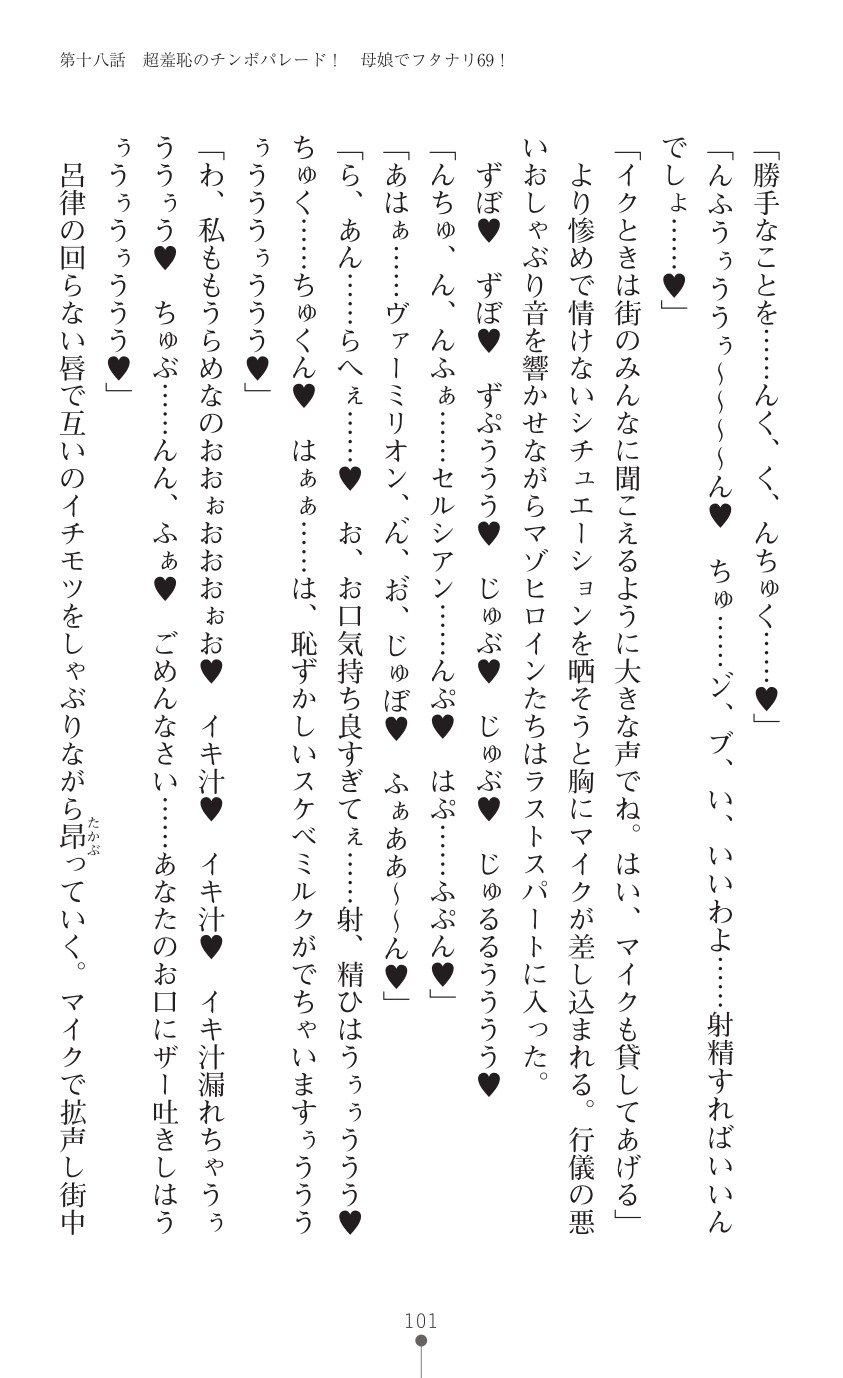 第十八話　超羞恥のチンポパレード！　母娘でフタナリ69！
「勝手なことを……んく、く、んちゅく……♥」
「んふうぅううぅ～～～～ん♥　ちゅ……ゾ、ブ、い、いいわよ……射精すればいいん
でしょ……♥」
「イクときは街のみんなに聞こえるように大きな声でね。はい、マイクも貸してあげる」
　より惨めで情けないシチュエーションを晒そうと胸にマイクが差し込まれる。行儀の悪
いおしゃぶり音を響かせながらマゾヒロインたちはラストスパートに入った。
　ずぼ♥　ずぼ♥　ずぷううう♥　じゅぶ♥　じゅぶ♥　じゅるるうううう♥
「んちゅ、ん、んふぁ……セルシアン……んぷ♥　はぷ……ふぷん♥」
「あはぁ……ヴァーミリオン、ん゛、お゛、じゅぼ♥　ふぁああ～～ん♥」
「ら、あん……らへぇ……♥　お、お口気持ち良すぎてぇ……射、精ひはうぅぅううう♥
ちゅく……ちゅくん♥　はぁぁ……は、恥ずかしいスケベミルクがでちゃいますぅううう
ぅうううぅううう♥」
「わ、私ももうらめなのおおぉおおおぉお♥　イキ汁♥　イキ汁♥　イキ汁漏れちゃうぅ
ううぅう♥　ちゅぶ……んん、ふぁ♥　ごめんなさい……あなたのお口にザー吐きしはう
ぅうぅうぅううう♥」
　呂律の回らない唇で互いのイチモツをしゃぶりながら昂っていく。マイクで拡声し街中
たかぶ
101